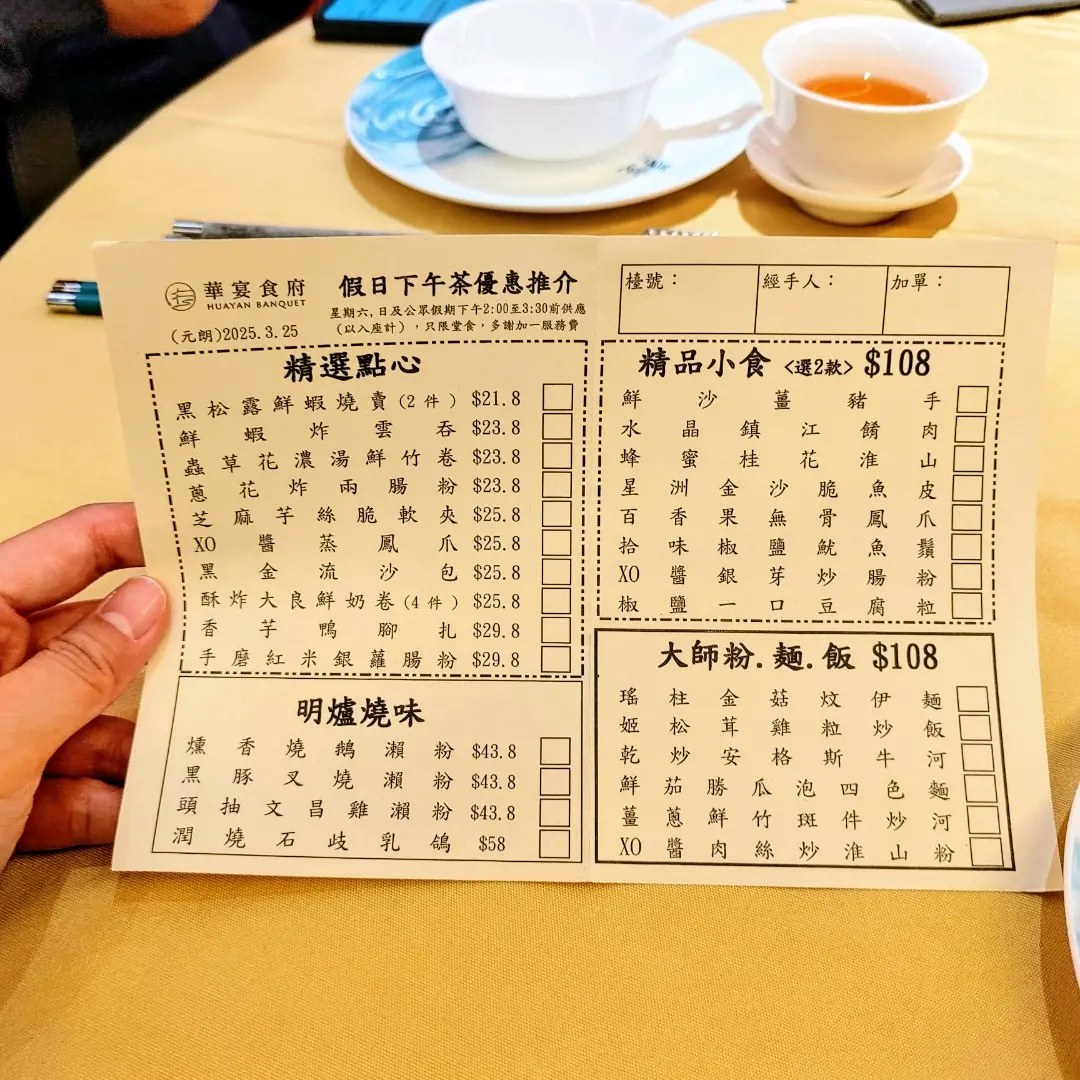 華宴食府
HUAYAN BANQUET
(元朗)2025.3.25
假日下午茶優惠推介
星期六,日及公眾假期下午2:00至3:30前供應
(以入座計),只限堂食,多謝加一服務費
檯號:
經手人:
加單:
精選點心
黑松露鮮蝦燒賣(2件) $21.8
鮮蝦炸雲吞 $23.8
蟲草花濃湯鮮竹卷 $23.8
蔥花炸兩腸粉 $23.8
芝麻芋絲脆軟夾 $25.8
XO醬蒸鳳爪 $25.8
黑金流沙包 $25.8
酥炸大良鮮奶卷(4件) $25.8
香芋鴨腳扎 $29.8
手磨紅米銀蘿腸粉 $29.8
明爐燒味
燻香燒鵝瀨粉 $43.8
黑豚叉燒瀨粉 $43.8
頭抽文昌雞瀨粉 $43.8
潤燒石歧乳鴿 $58
精品小食 <選2款> $108
鮮沙薑豬手
水晶鎮江餚肉
蜂蜜桂花淮山
星洲金沙脆魚皮
百香果無骨鳳爪
拾味椒鹽魷魚鬚
XO醬銀芽炒腸粉
椒鹽一口豆腐粒
大師粉.麵.飯 $108
瑤柱金菇炆伊麵
姬松茸雞粒炒飯
乾炒安格斯牛河
鮮茄勝瓜泡四色麵
薑蔥鮮竹斑件炒河
XO醬肉絲炒淮山粉